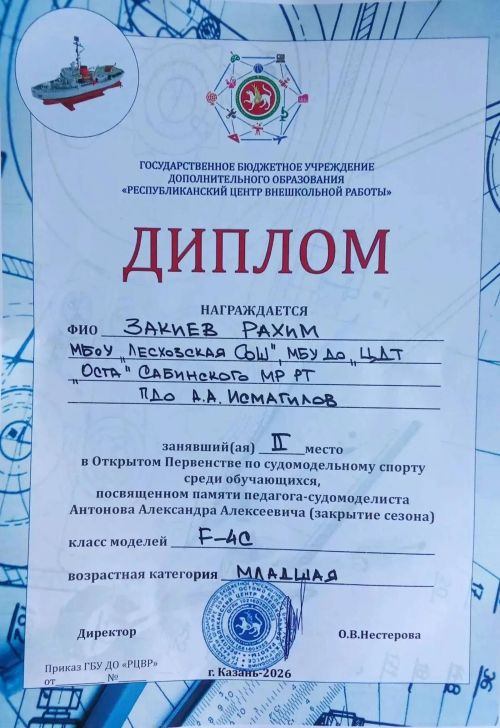 ГОСУДАРСТВЕННОЕ БЮДЖЕТНОЕ УЧРЕЖДЕНИЕ
ДОПОЛНИТЕЛЬНОГО ОБРАЗОВАНИЯ
«РЕСПУБЛИКАНСКИЙ ЦЕНТР ВНЕШКОЛЬНОЙ РАБОТЫ»
ДИПЛОМ
НАГРАЖДАЕТСЯ
ФИО ЗАКИЕВ РАХИМ
МБОУ „ЛЕСХОЗСКАЯ СОШ", МБУ ДО „ЦДТ
„ОСТА" САБИНСКОГО МР РТ
ПДО А.А. ИСМАГИЛОВ
занявший(ая) II место
в Открытом Первенстве по судомодельному спорту
среди обучающихся,
посвященном памяти педагога-судомоделиста
Антонова Александра Алексеевича (закрытие сезона)
класс моделей F-4C
возрастная категория МЛАДШАЯ
Директор О.В.Нестерова
Приказ ГБУ ДО «РЦВР»
от №
г. Казань-2026